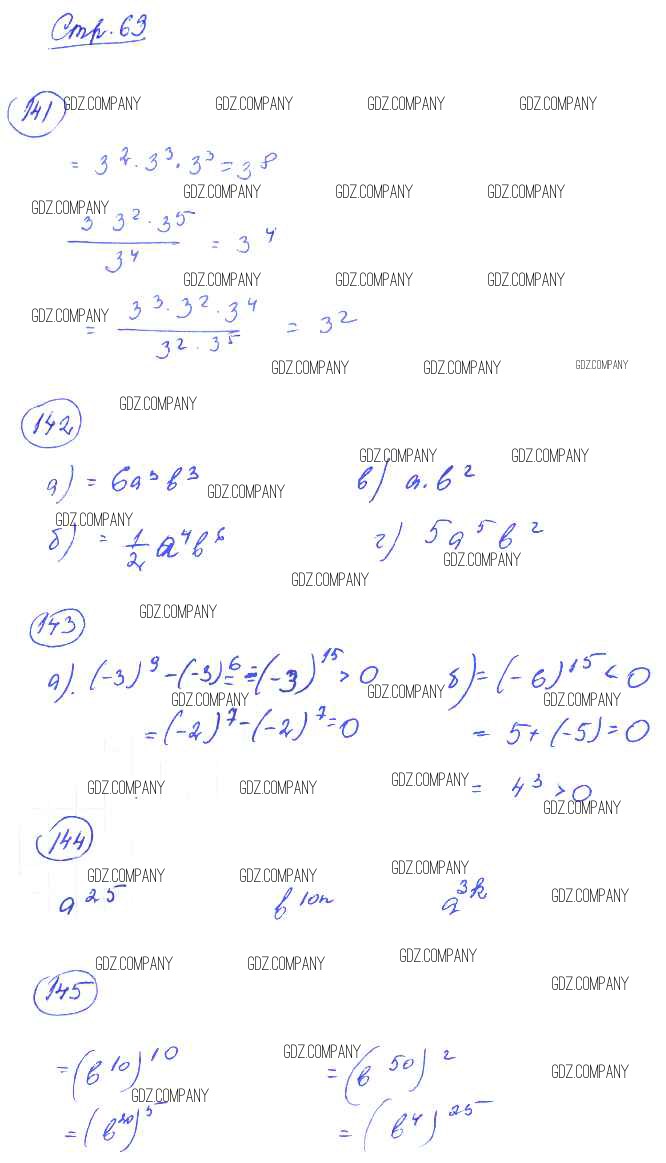 Стр. 63
141 GDZ.COMPANY GDZ.COMPANY GDZ.COMPANY GDZ.COMPANY
= 3² · 3³ · 3³ = 3⁸
GDZ.COMPANY GDZ.COMPANY GDZ.COMPANY GDZ.COMPANY
3 3² · 3⁵ / 3⁴ = 3⁴
GDZ.COMPANY GDZ.COMPANY GDZ.COMPANY GDZ.COMPANY
= 3³ · 3² · 3⁴ / 3² · 3⁵ = 3²
GDZ.COMPANY GDZ.COMPANY GDZ.COMPANY
142 GDZ.COMPANY
GDZ.COMPANY GDZ.COMPANY
а) = 6a³b³ GDZ.COMPANY в) a·b²
GDZ.COMPANY
б) = 1/2 a⁴b⁶ г) 5a⁵b²
GDZ.COMPANY
GDZ.COMPANY
143 GDZ.COMPANY
а). (-3)⁹ - (-3)⁶ = = (-3)¹⁵ > 0 б) = (-6)¹⁵ < 0
GDZ.COMPANY GDZ.COMPANY GDZ.COMPANY
= (-2)⁷ - (-2)⁷ = 0 = 5 + (-5) = 0
GDZ.COMPANY GDZ.COMPANY GDZ.COMPANY = 4³ > 0
GDZ.COMPANY
144
GDZ.COMPANY GDZ.COMPANY GDZ.COMPANY
a²⁵ b¹⁰ⁿ a³ᵏ GDZ.COMPANY
GDZ.COMPANY GDZ.COMPANY GDZ.COMPANY
145 GDZ.COMPANY
= (b¹⁰)¹⁰ GDZ.COMPANY = (b⁵⁰)² GDZ.COMPANY
GDZ.COMPANY
= (b²⁰)⁵ = (b⁴)²⁵